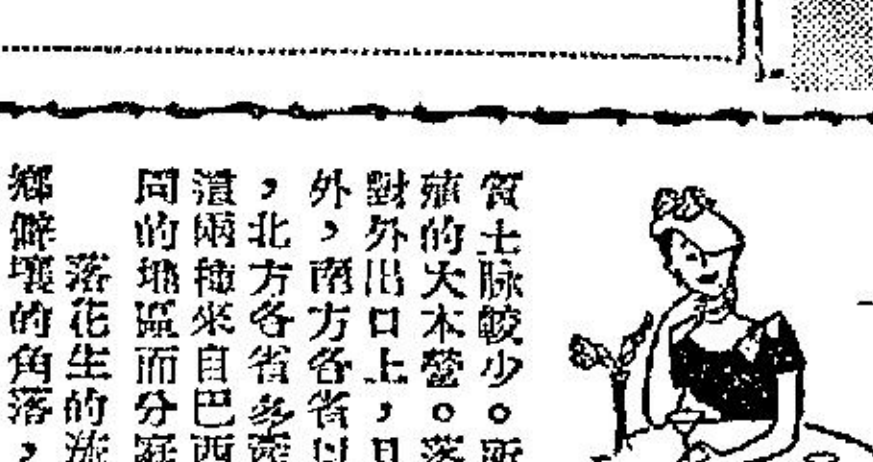 質土脉較少。所
殖的大本營。落
對外出口上，且
外，南方各省以
，北方各省多
這兩種來自巴西
同的地區而分
落花生的
鄉僻壤的角落，